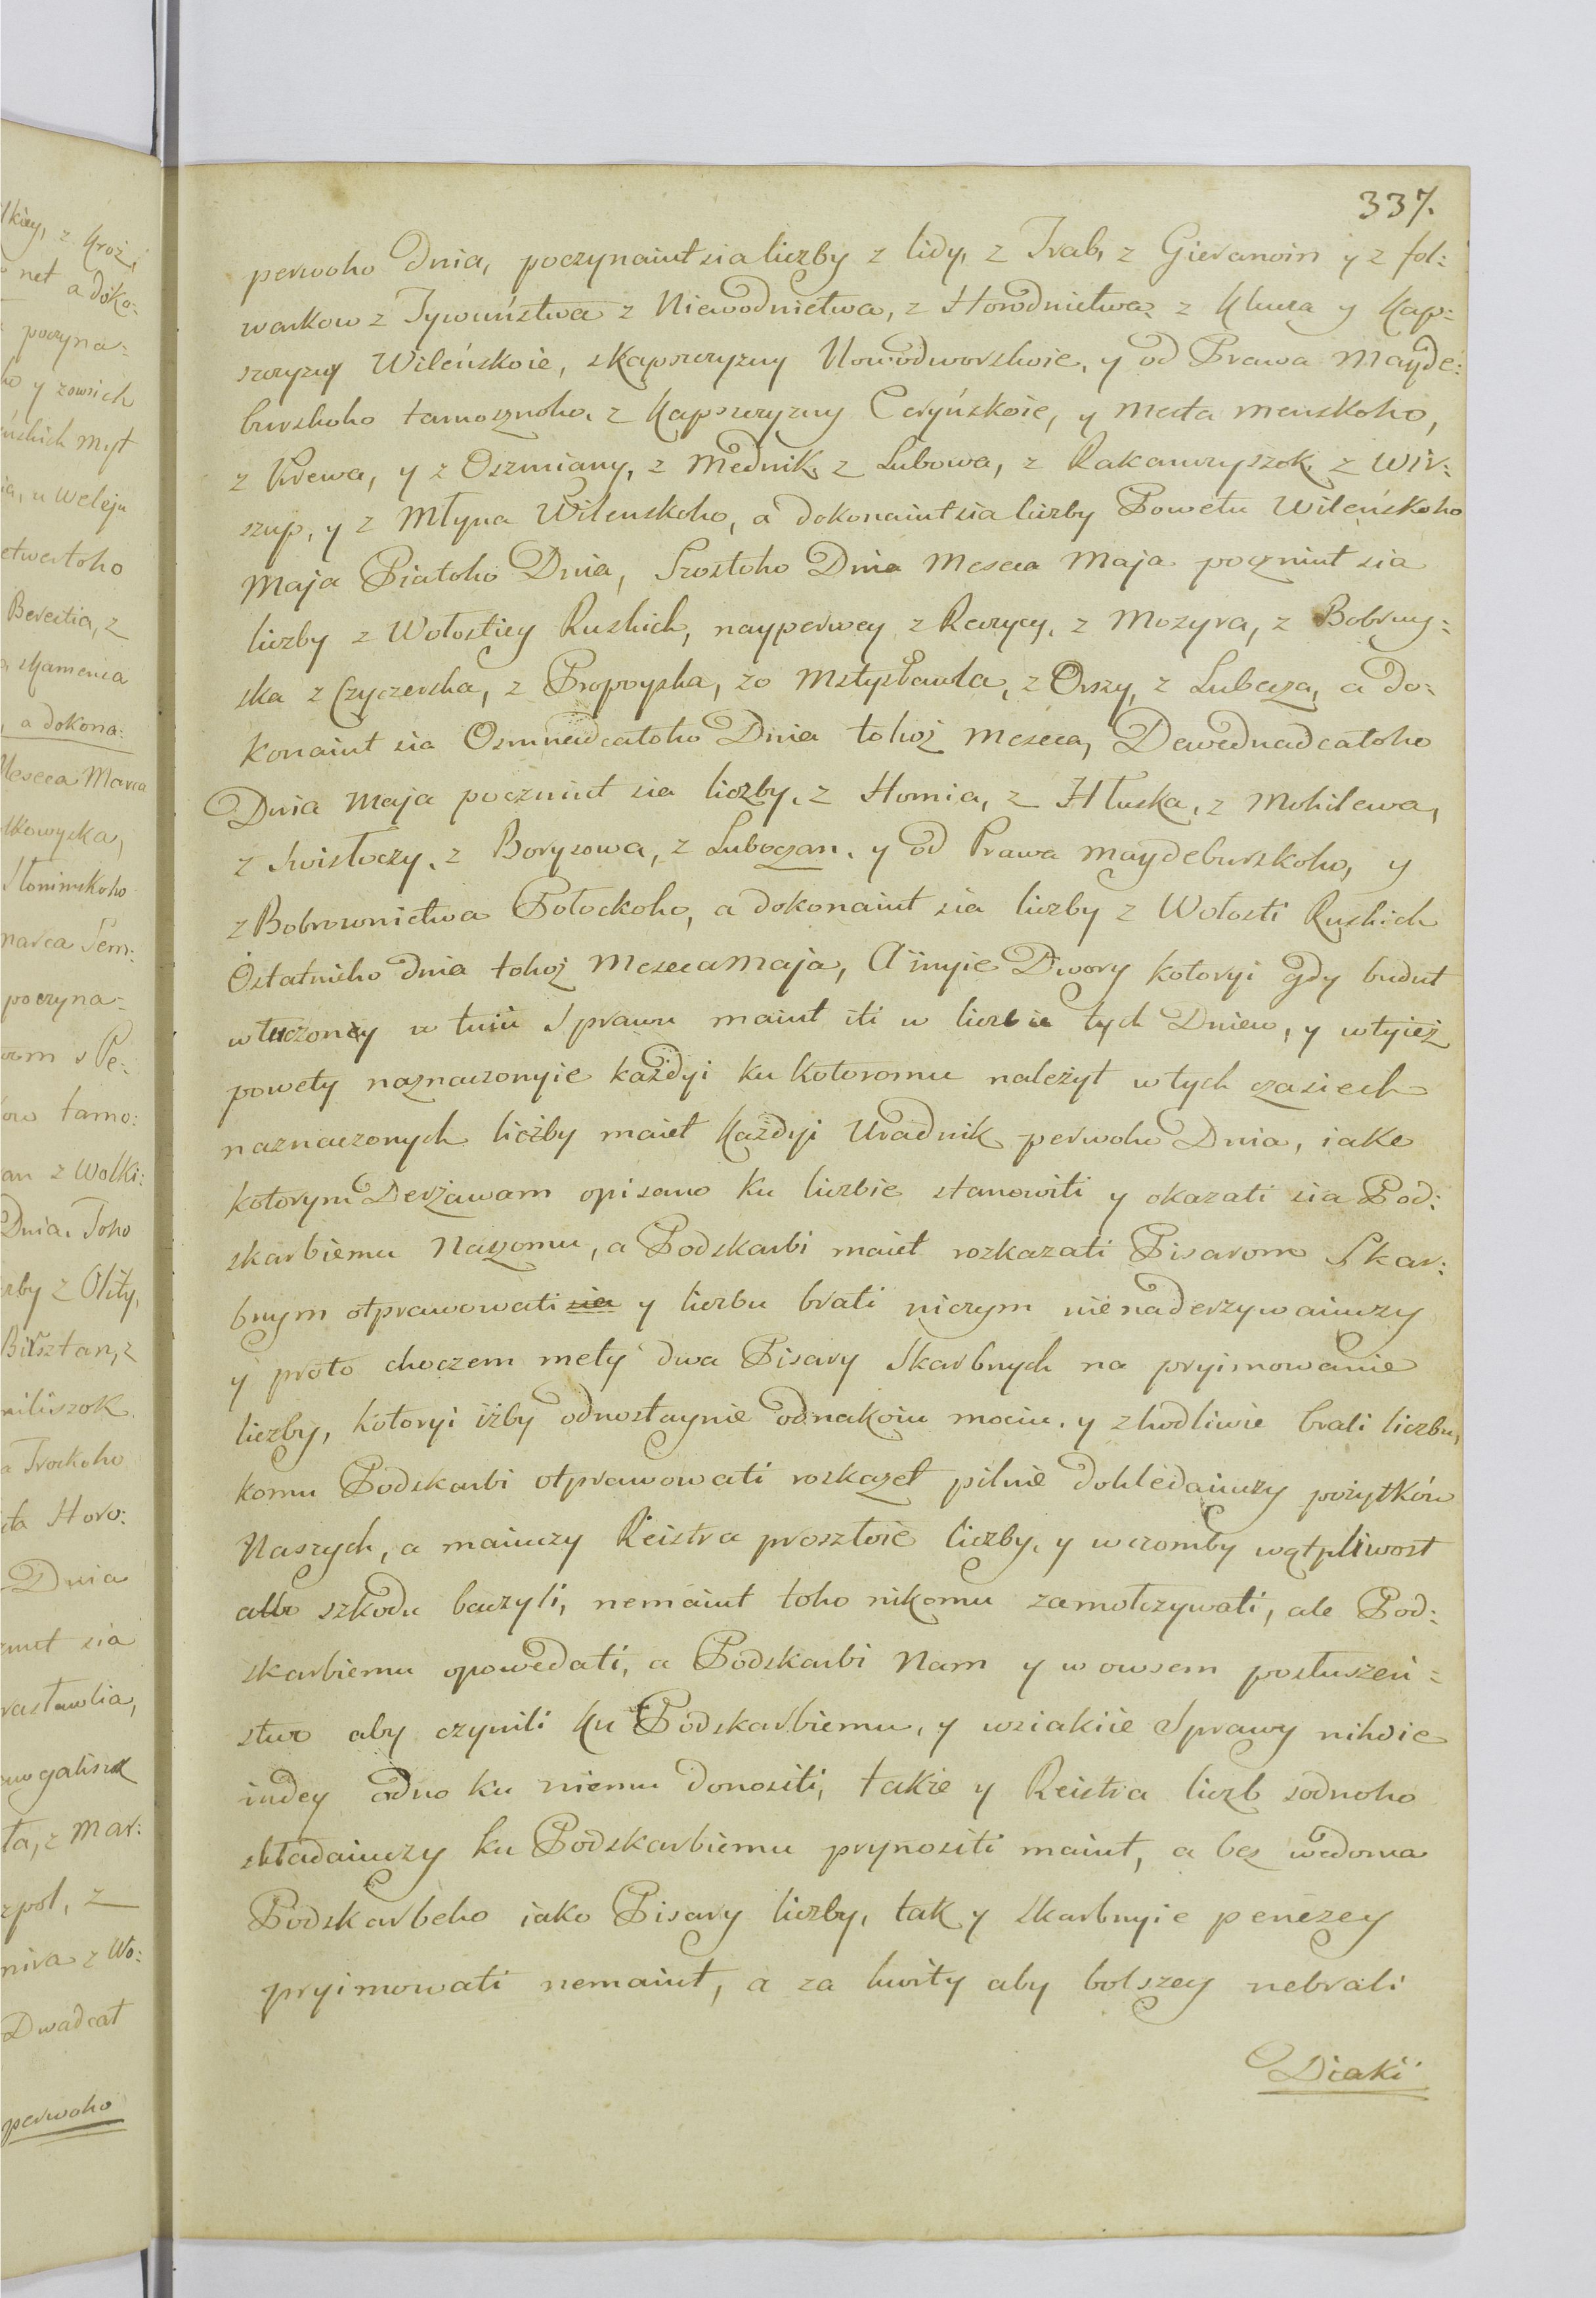 337.
perwoho Dnia, poczynaiut sia liczby z lidy, z Trab, z Gieranoin y z fol:
warkow z Tywuństwa z Niewodnictwa, z Horodnictwa, z Klucza y Kap:
szczyzny Wileńskoie, skapszczyzny Nowodworskoie, y od Prawa Mayde:
burskoho tamosznoho, z Kapszczyzny Ceryńskoie, y Mesta menskoho,
z Krewa, y z Oszmiany, z Mednik, z Lubowa, z Rakanczyszok, z Wir:
szup, y z Młyna Wilenskoho, a dokonaiut sia liczby Powetu Wileńskoho
Maja Piatoho Dnia, Szostoho Dnia Meseca Maja poczniut sia
liczby z Wołostiey Ruskich, nayperwey z Reczycy, z Mozyra, z Bobruy:
ska z Czyczerska, z Propoyska, zo Mstysławla, z Orszy, z Lubcza, a do:
konaiut sia Osmnadcatoho Dnia tohoż Meseca, Dewednadcatoho
Dnia Maja poczniut sia liczby, z Homia, z Hłuska, z Mohilewa,
z Swisłoczy, z Borysowa, z Luboczan, y od Prawa Maydeburskoho, y
z Bobrownictwa Połockoho, a dokonaiut sia liczby z Wołosti Ruskich
Ostatnieho dnia tohoż Meseca Maja, A inyie Dwory kotoryi gdy budut
włuczoney w tuiu Sprawu maiut iti w liczbie tych Dniew, y w tyież
powety naznaczonyie każdyi ku kotoromu należyt w tych czasiech
naznaczonych liczby maiet każdyi Uradnik perwoho Dnia, iako
kotorym Derżawam opisano ku liczbie stanowiti y okazati sia Pod:
skarbiemu Naszomu, a Podskarbi maiet rozkazati Pisarom Skar:
bnym otprawowati sia y liczbu brati niczym nie naderzywaiuczy
y proto choczem mety dwa Pisary Skarbnych na pryimowanie
liczby, kotoryi iżby odnostaynie odnakoiu mociu, y zhodliwie brali liczbu,
komu Podskarbi otprawowati roskazet pilnie dohledaiuczy pożytków
Naszych, a maiuczy Reistra proszłoie liczby, y w czomby wątpliwost
albo szkodu baczyli, nemaiut toho nikomu zamołczywati, ale Pod:
skarbiemu opowedati, a Podskarbi Nam y w owsem posłuszeń:
stwo aby czynili ku Podskarbiemu, y wsiakiie Sprawy nihdie
indey odno ku niemu donositi, takie y Reistra liczb sodnoho
składaiuczy ku Podskarbiemu prynositi maiut, a bez wedoma
Podskarbeho iako Pisary liczby, tak y Skarbnyie penezey
pryimowati nemaiut, a za kwity aby bolszey nebrali
Diaki